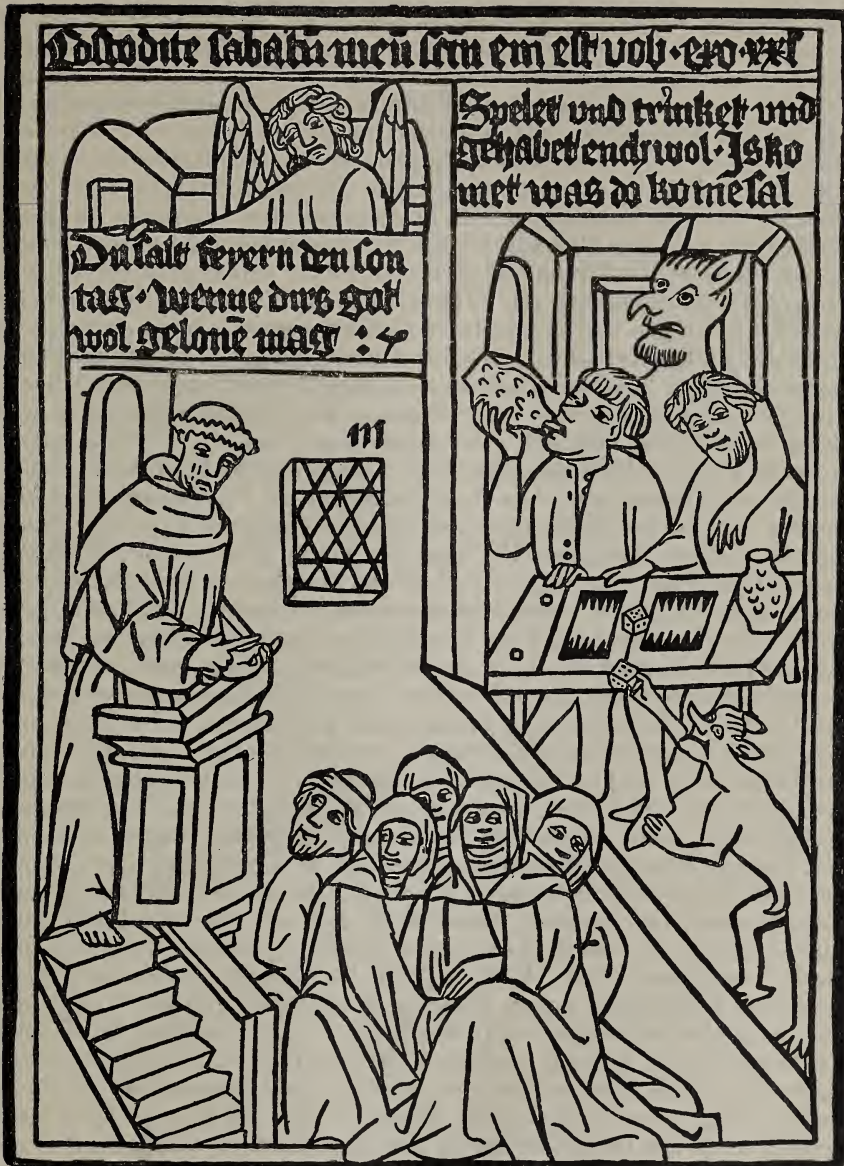 Costodite sabatū meū scm̄ em̄ est vob · exo · xxxi
Du salt feyern den son
tag · wenne dirs got
wol gelonē mag :
m
Spelet vnd trinket vnd
gehabet euch wol · Is ko
met was do komē sal